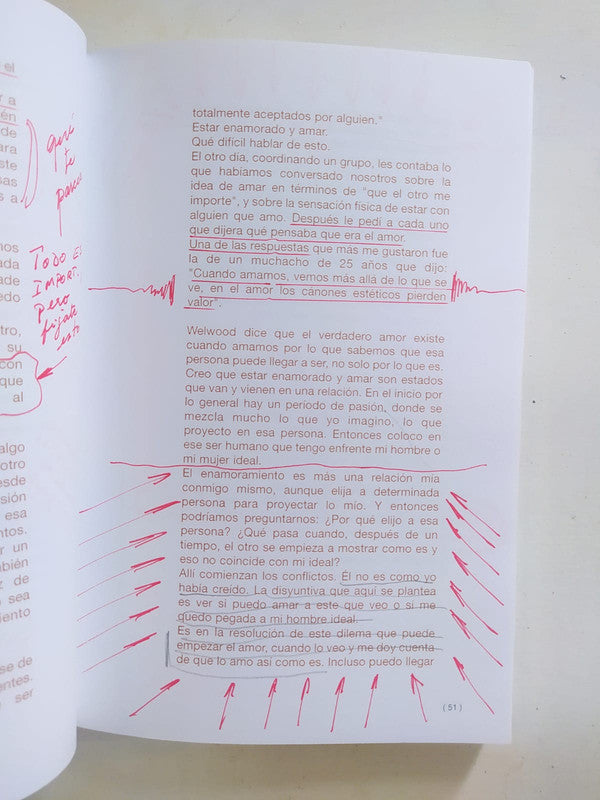 el
a
én
de
ara
ste
sas
s a
qué
te
TODO ES
IMPORT.
pero
fijate
esto
mos
ada
ade
edo
tro,
su
con
que
al
algo
otro
esde
sión
esa
ntos.
r un
bién
z de
sea
iento
se de
entes.
ser
totalmente aceptados por alguien."
Estar enamorado y amar.
Qué difícil hablar de esto.
El otro día, coordinando un grupo, les contaba lo
que habíamos conversado nosotros sobre la
idea de amar en términos de "que el otro me
importe", y sobre la sensación física de estar con
alguien que amo. Después le pedí a cada uno
que dijera qué pensaba que era el amor.
Una de las respuestas que más me gustaron fue
la de un muchacho de 25 años que dijo:
"Cuando amamos, vemos más allá de lo que se
ve, en el amor los cánones estéticos pierden
valor".
Welwood dice que el verdadero amor existe
cuando amamos por lo que sabemos que esa
persona puede llegar a ser, no solo por lo que es.
Creo que estar enamorado y amar son estados
que van y vienen en una relación. En el inicio por
lo general hay un período de pasión, donde se
mezcla mucho lo que yo imagino, lo que
proyecto en esa persona. Entonces coloco en
ese ser humano que tengo enfrente mi hombre o
mi mujer ideal.
El enamoramiento es más una relación mía
conmigo mismo, aunque elija a determinada
persona para proyectar lo mío. Y entonces
podríamos preguntarnos: ¿Por qué elijo a esa
persona? ¿Qué pasa cuando, después de un
tiempo, el otro se empieza a mostrar como es y
eso no coincide con mi ideal?
Allí comienzan los conflictos. Él no es como yo
había creído. La disyuntiva que aquí se plantea
es ver si puedo amar a este que veo o si me
quedo pegada a mi hombre ideal.
Es en la resolución de este dilema que puede
empezar el amor, cuando lo veo y me doy cuenta
de que lo amo así como es. Incluso puedo llegar
(51)